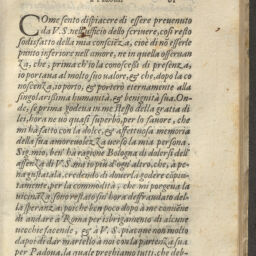 COme sento dispiacere di essere preuenuto
da V.S. nell'ufficio dello scriuere, così resto
sodisfatto della mia consciẽza, cioè di nõ esserle
punto inferiore nell'amore, ne in quella osseruan
za, che, prima ch'io la conoscessi di presenza,
io portaua al molto suo valore, & che, dopo la co
noscenza, io porto, & porterò eternamente alla
singolarissima humanità, & benignità sua. On-
de, se prima godeua in me stesso della gratia di
lei, hora ne uò quasi superbo, per lo fauore, che
mi hà fatto con la dolce, & affettuosa memoria
della sua amoreuolezza uerso la mia persona.
Sig. mio, ben hà ragione Bologna di dolersi dell'
assenza di V.S. ma io più d'ogni altro, che, à pe-
na gustatala, credendo di douerla godere cõpiu-
tamente, per la commodità, che mi porgeua la
uicinãza, sono restato sin' hora defraudato del-
la speranza, poi che ben poco dopo à me cõuẽne
di andare à Roma per isbrigamento di alcune
uecchie facende, & à V.S. piacque non molto
dapoi di dar martello à noi con la partenza sua
per Padoua, la quale preghiamo tutti, che deb-